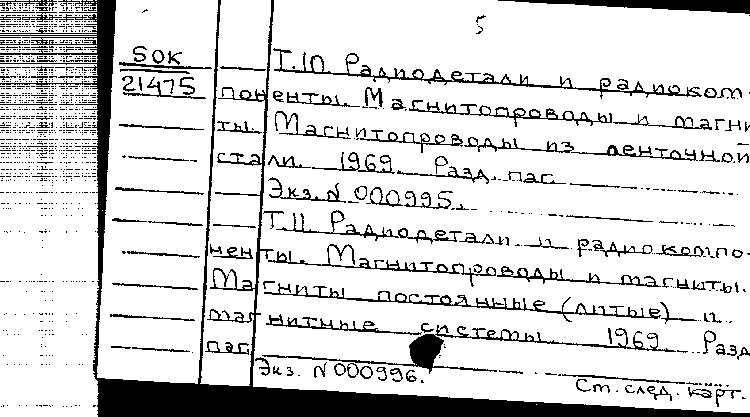 5
SOK
21475
Т.10. Радиодетали и радиоком-
поненты. Магнитопроводы и магни-
ты. Магнитопроводы из ленточной
стали. 1969. Разд. паг.
Экз. N 000995.
Т.11. Радиодетали и радиокомпо-
ненты. Магнитопроводы и магниты.
Магниты постоянные (литые) и
магнитные системы. 1969. Разд.
паг.
Экз. N 000996.
Ст. след. карт.